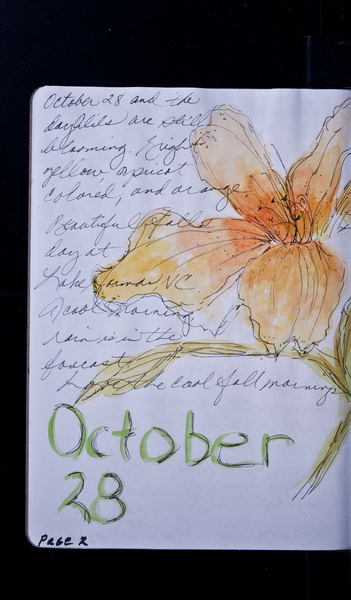 October 28 and the
daylilis are still
blooming. Bright
yellow apricot
colored, and orange
Beautiful falls
day at
Lake Norman NC
A cool morning,
rain is in the
forcast.
Love the cool fall mornings
October
28
PAGE 2